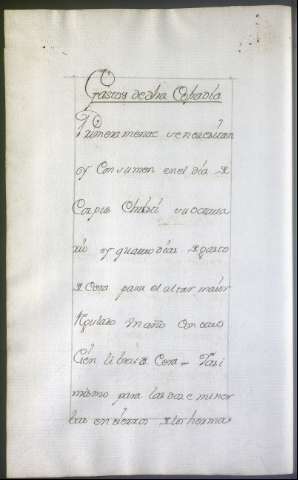 Gastos de dha Cofradía
Primeramente se necesitan
y Consumen en el día de
Corpus Christi su octava
rio y quatro días de gasto
de Cera para el altar maior
Regulado un año con otro
Cien libras de Cera = Y así
mismo para las doce miner
bas en tierros de los herma